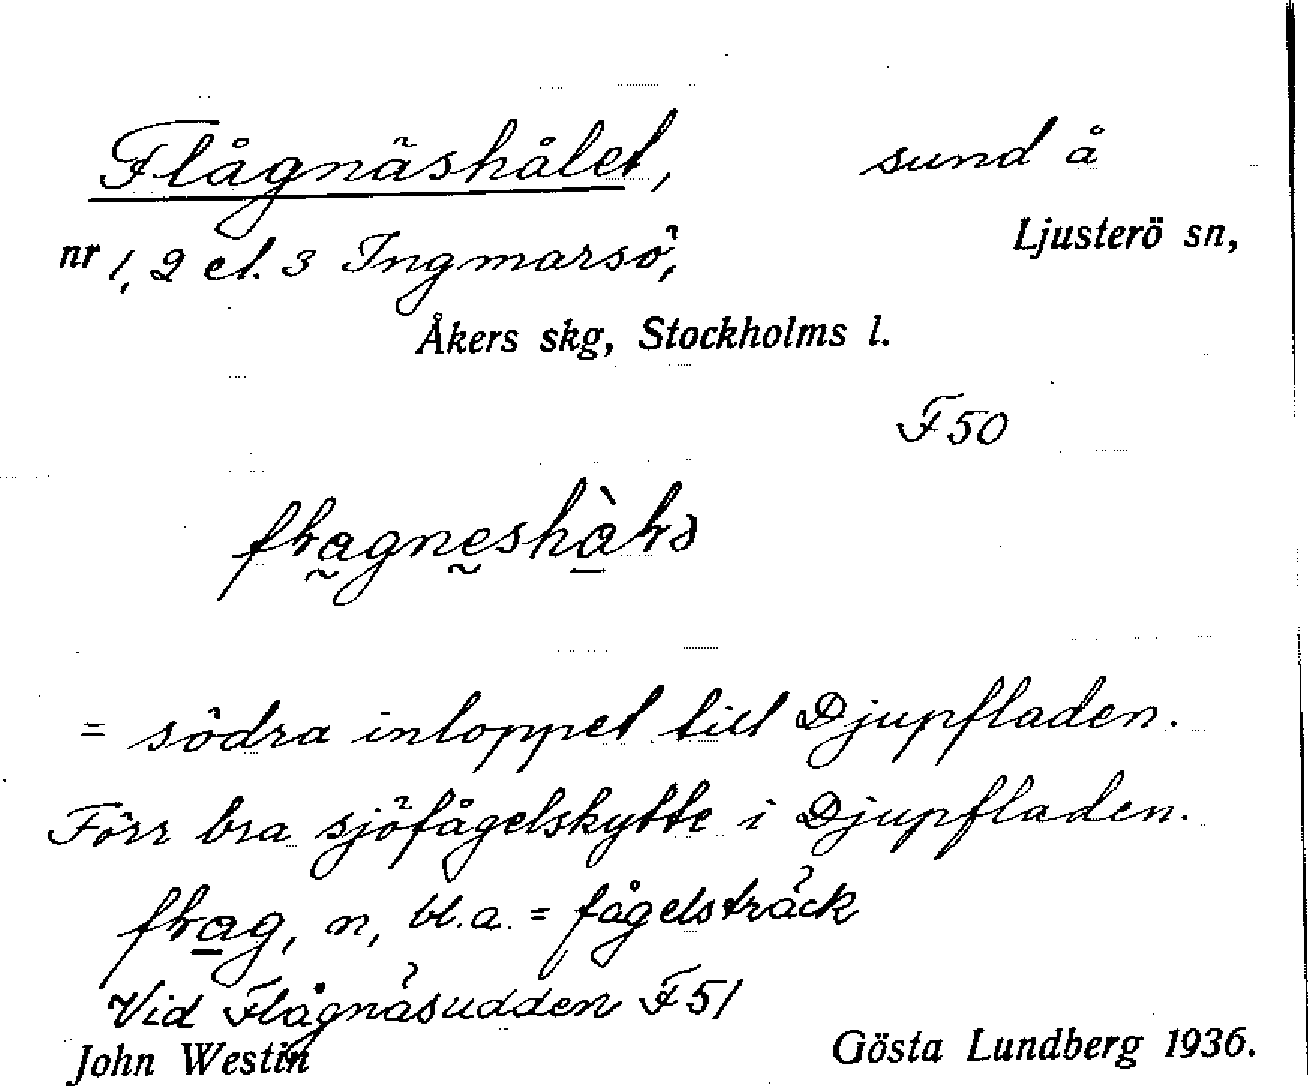 Flågnäshålet, sund å
nr 1, 2 el. 3 Ingmarsö, Ljusterö sn,
Åkers skg, Stockholms l.
F 50
= södra inloppet till Djupfladen.
Förr bra sjöfågelskytte i Djupfladen.
n, bl.a. = fågelsträck
Vid Flågnäsudden F 51
John Westin Gösta Lundberg 1936.